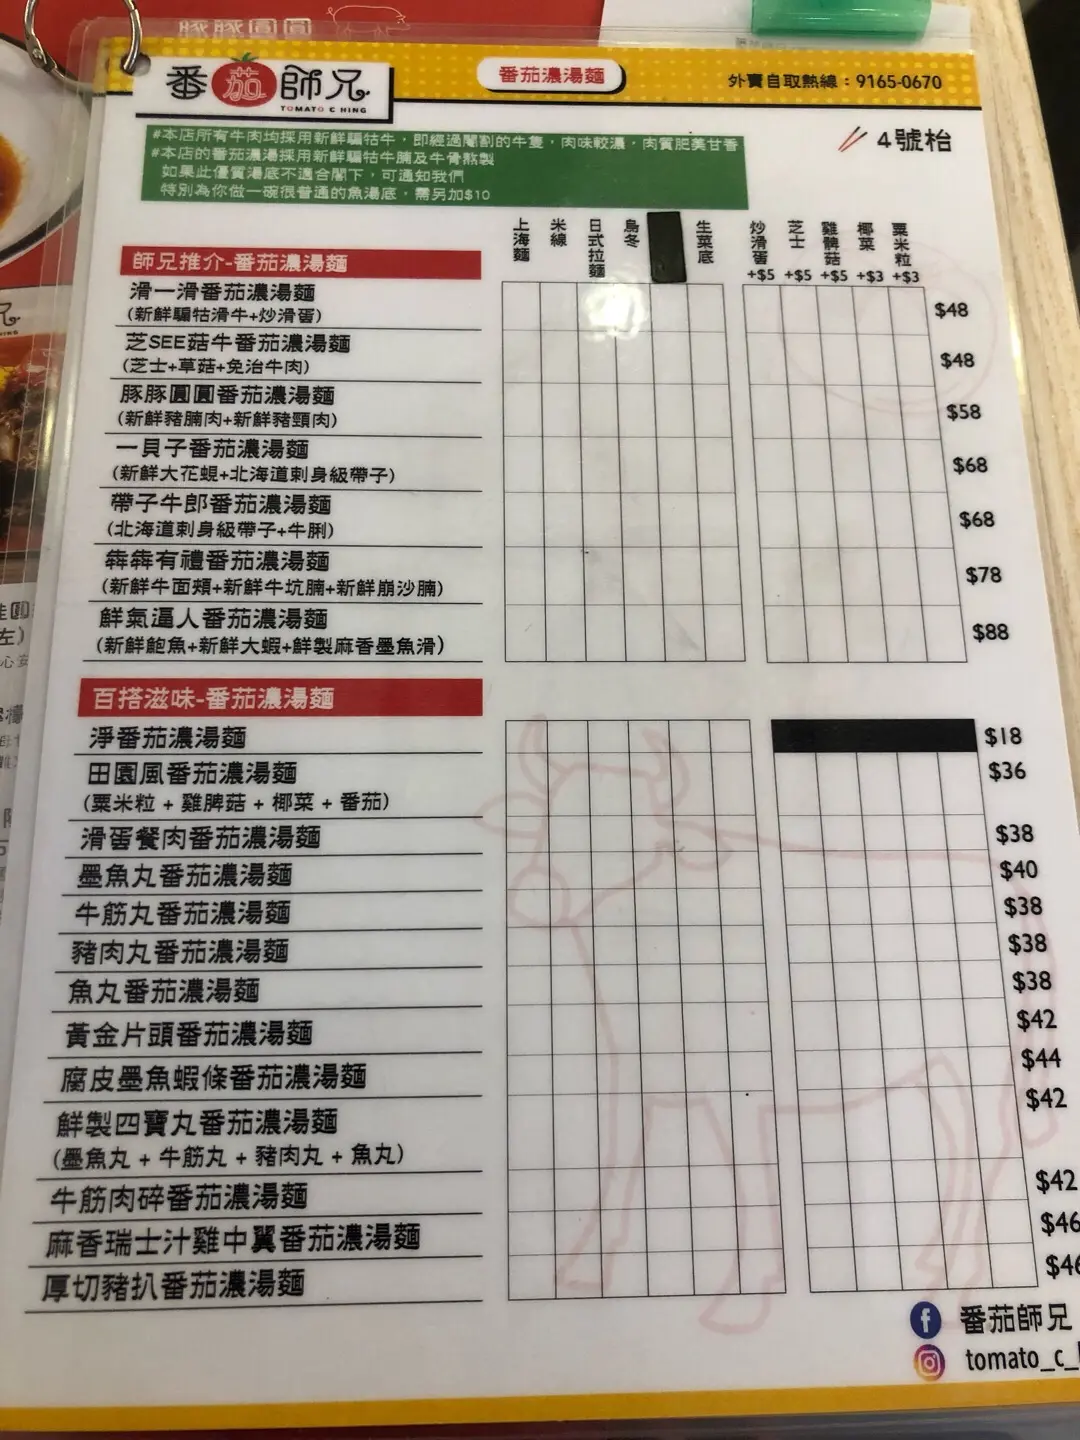 番茄師兄
TOMATO C HING
番茄濃湯麵
外賣自取熱線：9165-0670
#本店所有牛肉均採用新鮮騸牯牛，即經過閹割的牛隻，肉味較濃，肉質肥美甘香
#本店的番茄濃湯採用新鮮騸牯牛腩及牛骨熬製
如果此優質湯底不適合閣下，可通知我們
特別為你做一碗很普通的魚湯底，需另加$10
4號枱
上海麵
米線
日式拉麵
烏冬
生菜底
炒滑蛋 +$5
芝士 +$5
雞髀菇 +$5
椰菜 +$3
粟米粒 +$3
師兄推介-番茄濃湯麵
滑一滑番茄濃湯麵 $48
(新鮮騸牯滑牛+炒滑蛋)
芝SEE菇牛番茄濃湯麵 $48
(芝士+草菇+免治牛肉)
豚豚圓圓番茄濃湯麵 $58
(新鮮豬腩肉+新鮮豬頸肉)
一貝子番茄濃湯麵 $68
(新鮮大花蜆+北海道刺身級帶子)
帶子牛郎番茄濃湯麵 $68
(北海道刺身級帶子+牛脷)
犇犇有禮番茄濃湯麵 $78
(新鮮牛面頰+新鮮牛坑腩+新鮮崩沙腩)
鮮氣逼人番茄濃湯麵 $88
(新鮮鮑魚+新鮮大蝦+鮮製麻香墨魚滑)
百搭滋味-番茄濃湯麵
淨番茄濃湯麵 $18
田園風番茄濃湯麵 $36
(粟米粒 + 雞脾菇 + 椰菜 + 番茄)
滑蛋餐肉番茄濃湯麵 $38
墨魚丸番茄濃湯麵 $40
牛筋丸番茄濃湯麵 $38
豬肉丸番茄濃湯麵 $38
魚丸番茄濃湯麵 $38
黃金片頭番茄濃湯麵 $42
腐皮墨魚蝦條番茄濃湯麵 $44
鮮製四寶丸番茄濃湯麵 $42
(墨魚丸 + 牛筋丸 + 豬肉丸 + 魚丸)
牛筋肉碎番茄濃湯麵 $42
麻香瑞士汁雞中翼番茄濃湯麵 $46
厚切豬扒番茄濃湯麵 $46
番茄師兄
tomato_c_